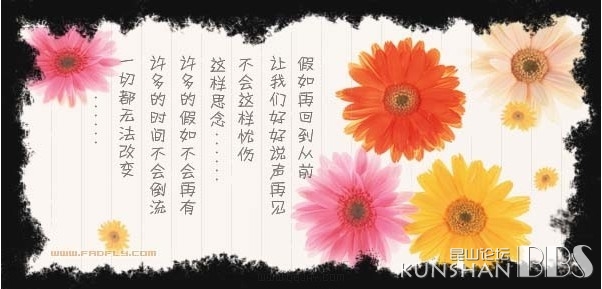 假如再回到从前
让我们好好说声再见
不会这样忧伤
这样思念······
许多的假如不会再有
许多的时间不会倒流
一切都无法改变
······
WWW.FADFLY.COM
昆山论坛
KUNSHAN BBS